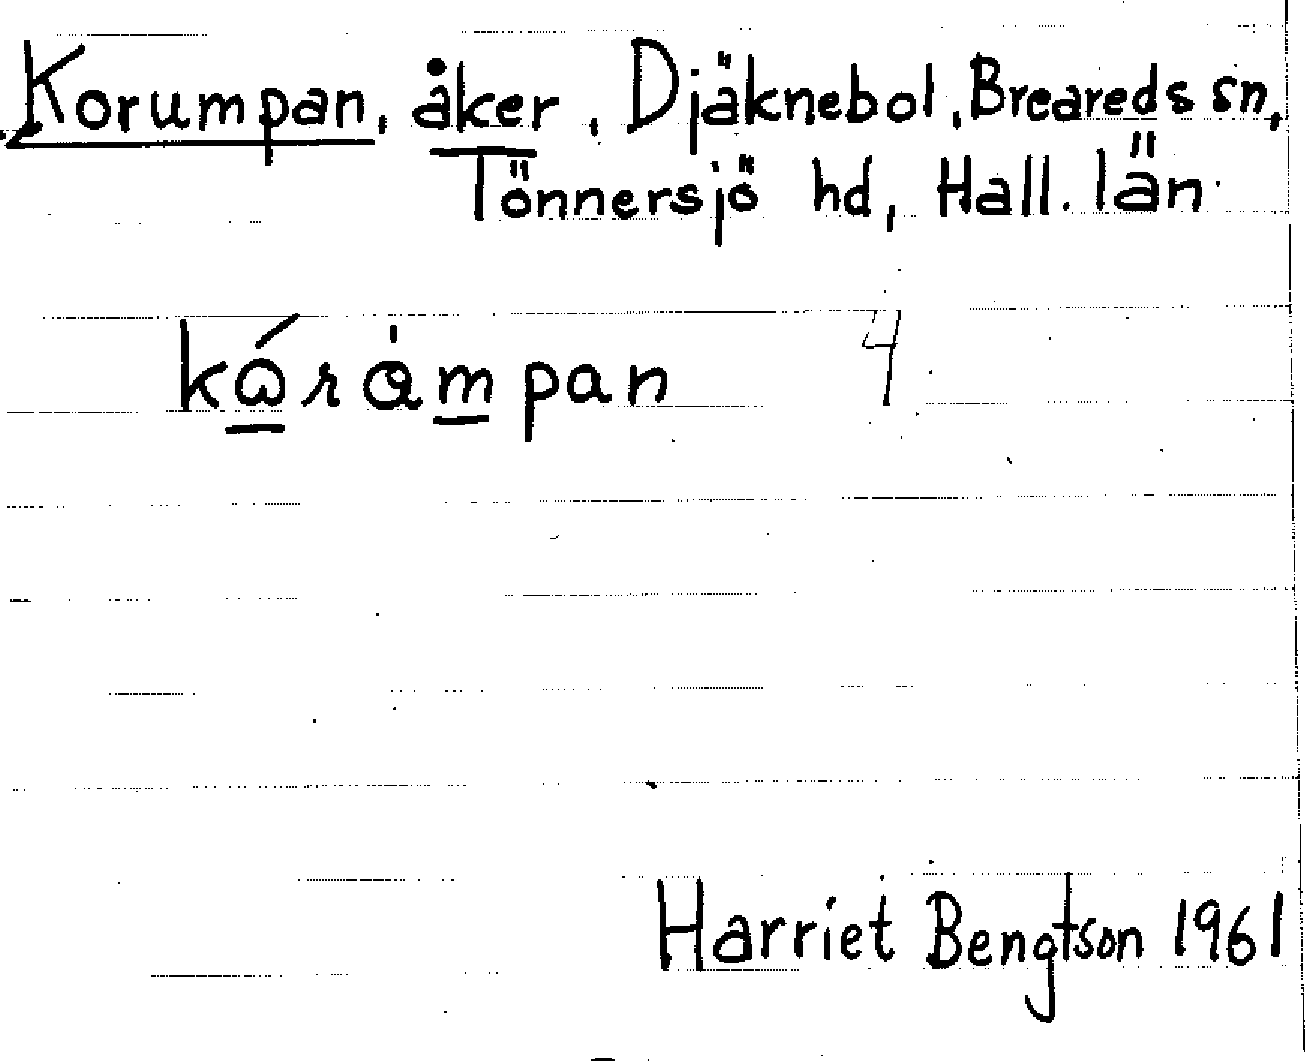 Korumpan, åker, Djäknebol, Breareds sn,
Tönnersjö hd, Hall. län
kǻråmpan 4
Harriet Bengtson 1961